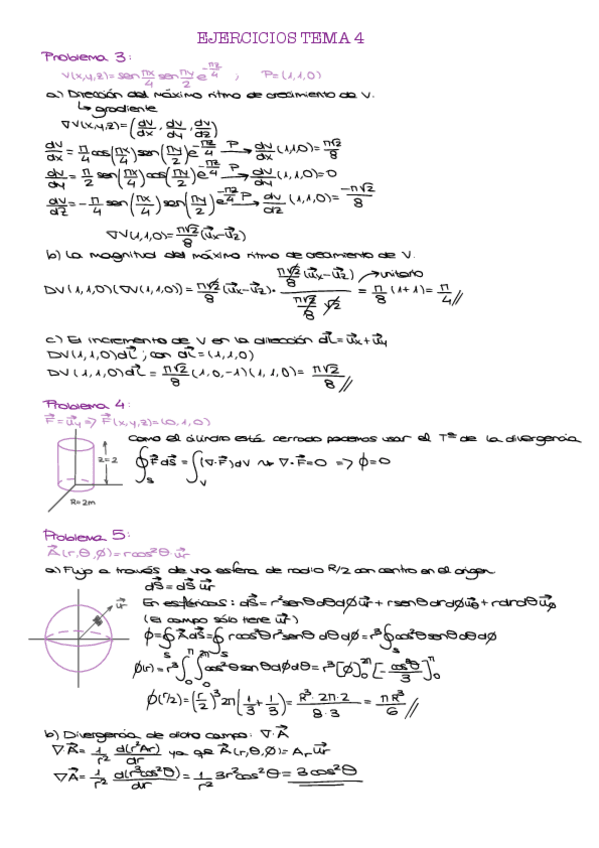 EJERCICIOS TEMA 4
Problema 3:
V(x,y,z)=sen πx/4 sen πy/2 e^(-πz/4) ; P=(1,1,0)
a) Dirección del máximo ritmo de crecimiento de V.
↳ gradiente
∇V(x,y,z)=(dV/dx, dV/dy, dV/dz)
dV/dx = π/4 cos(πx/4) sen(πy/2) e^(-πz/4) P→ dV/dx (1,1,0)= π√2/8
dV/dy = π/2 sen(πx/4) cos(πy/2) e^(-πz/4) P→ dV/dy (1,1,0)=0
dV/dz = -π/4 sen(πx/4) sen(πy/2) e^(-πz/4) P→ dV/dz (1,1,0)= -π√2/8
∇V(1,1,0)= π√2/8 (u⃗x-u⃗z)
b) La magnitud del máximo ritmo de crecimiento de V.
DV(1,1,0)(∇V(1,1,0)) = π√2/8 (u⃗x-u⃗z) · π√2/8 (u⃗x-u⃗z) / π√2/8 √2 → unitario = π/8 (1+1)= π/4 //
c) El incremento de V en la dirección dl⃗=u⃗x+u⃗y
DV(1,1,0)dl⃗ ; con dl⃗=(1,1,0)
DV(1,1,0)dl⃗ = π√2/8 (1,0,-1)(1,1,0)= π√2/8 //
Problema 4:
F⃗=u⃗y => F⃗(x,y,z)=(0,1,0)
Como el cilindro está cerrado podemos usar el Tª de la divergencia
z=2
∮s F⃗dS⃗ = ∫v (∇·F⃗)dV ⇝ ∇·F⃗=0 => ϕ=0
R=2m
Problema 5:
A⃗(r,θ,ϕ)=rcos²θ·u⃗r
a) Flujo a través de una esfera de radio R/2 con centro en el origen
dS⃗=dS u⃗r
u⃗r
En esféricas: dS⃗=r²senθdθdϕu⃗r+rsenθdrdϕu⃗θ+rdrdθu⃗ϕ
(el campo sólo tiene u⃗r)
ϕ=∮s A⃗dS⃗=∮s rcos²θr²senθdθdϕ=r³∮s cos²θsenθdθdϕ
ϕ(r)=r³∫0^π∫0^2π cos²θsenθdϕdθ=r³[ϕ]0^2π[-cos³θ/3]0^π
ϕ(r/2)=(r/2)³2π(1/3+1/3)= R³·2π·2/8·3 = πR³/6 //
b) Divergencia de dicho campo: ∇·A⃗
∇A⃗= 1/r² d(r²Ar)/dr ya que A⃗(r,θ,ϕ)=Ar u⃗r
∇A⃗= 1/r² d(r³cos²θ)/dr = 1/r² 3r²cos²θ= 3cos²θ